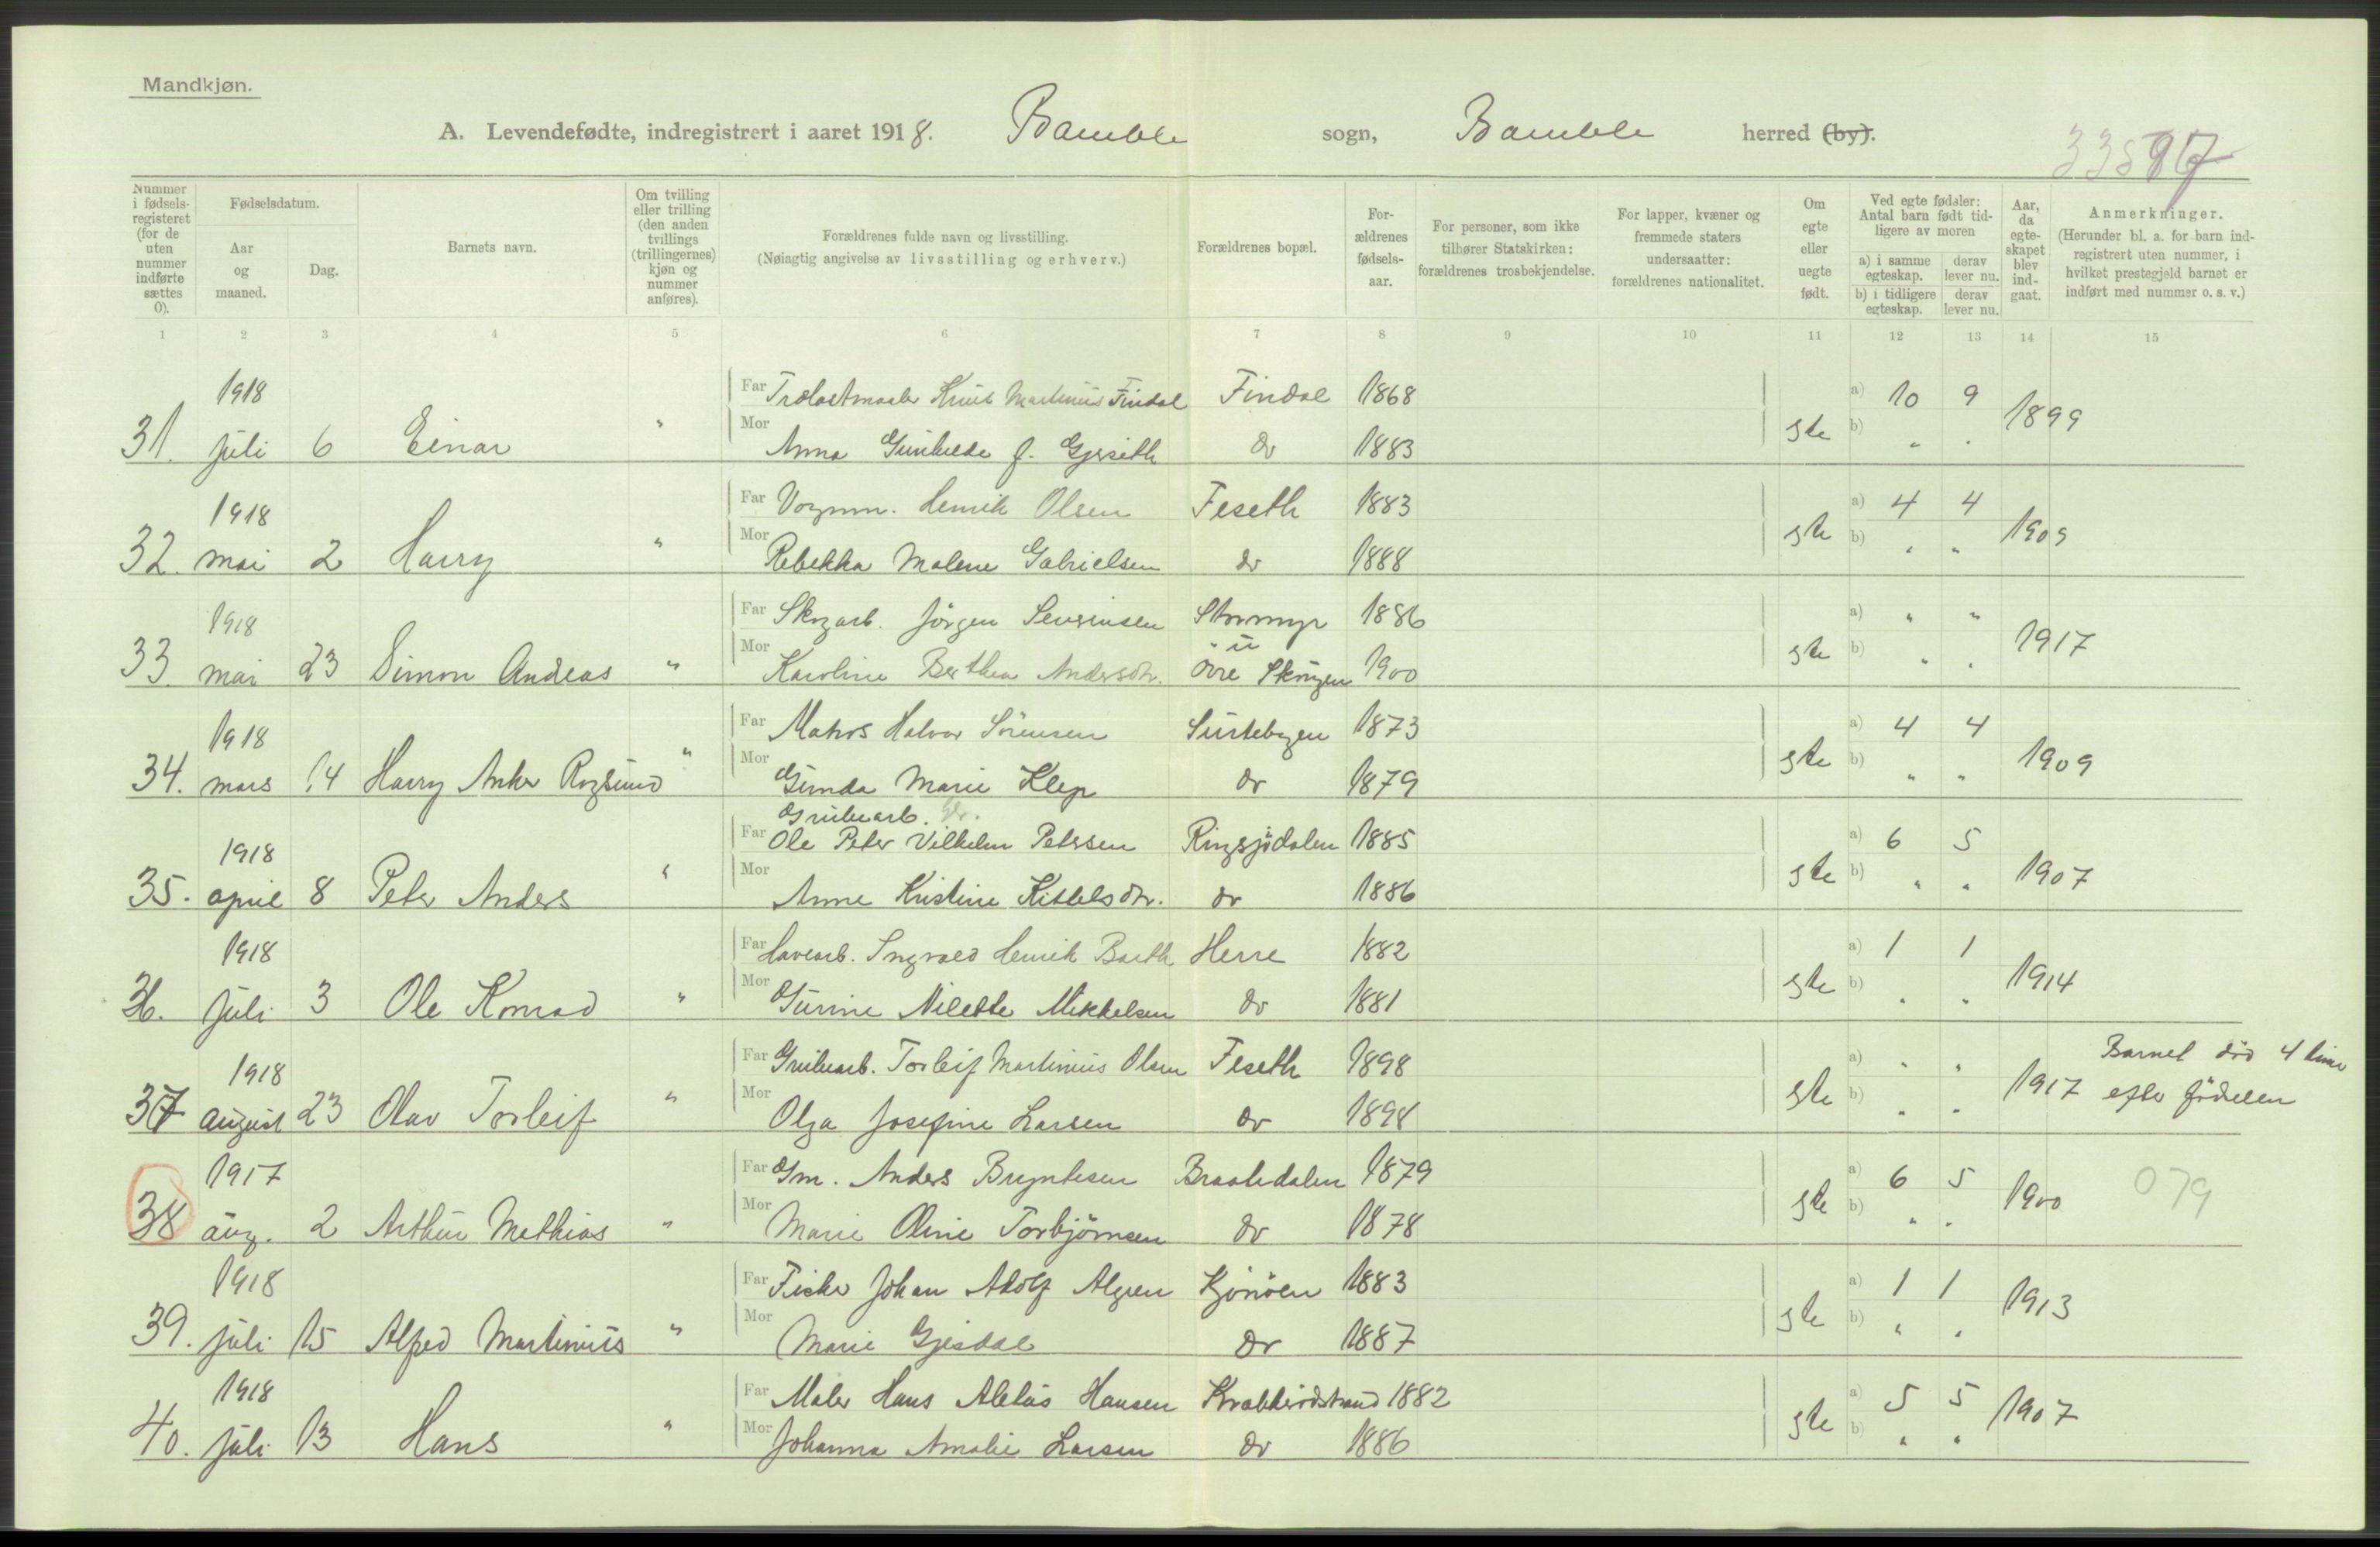 Mandkjøn.
A. Levendefødte, indregistrert i aaret 1918. Bamble sogn, Bamble herred (by).
Nummer i fødselsregisteret (for de uten nummer indførte sættes 0).
Fødselsdatum.
Aar og maaned.
Dag.
Barnets navn.
Om tvilling eller trilling (den anden tvillings (trillingernes) kjøn og nummer anføres).
Forældrenes fulde navn og livsstilling.
(Nøiagtig angivelse av livsstilling og erhverv.)
Forældrenes bopæl.
Forældrenes fødselsaar.
For personer, som ikke tilhører Statskirken: forældrenes trosbekjendelse.
For lapper, kvæner og fremmede staters undersaatter: forældrenes nationalitet.
Om egte eller uegte født.
Ved egte fødsler: Antal barn født tidligere av moren
a) i samme egteskap. derav lever nu.
b) i tidligere egteskap. derav lever nu.
Aar, da egteskapet blev indgaat.
Anmerkninger.
(Herunder bl. a. for barn indregistrert uten nummer, i hvilket prestegjeld barnet er indført med nummer o. s. v.)
1 2 3 4 5 6 7 8 9 10 11 12 13 14 15
1918 Far Trælastmaaler Knut Martinius Findal Findal 1868 a) 10 9
31. juli 6 Einar " Mor Anna Gunhilde f. Gjerseth do 1883 gte b) " " 1899
1918 Far Vognm. Henrik Olsen Feseth 1883 a) 4 4
32. mai 2 Harry " Mor Rebekka Malene Gabrielsen do 1888 gte b) " " 1909
1918 Far Skogarb. Jörgen Severinsen Stormyr 1886 a) " "
33. mai 23 Simon Andreas " Mor Karoline Berthea Andersdtr. övre Skogen 1900 gte b) " " 1917
1918 Far Matros Halvor Sörensen Surtebogen 1873 a) 4 4
34. mars 14 Harry Anker Rogslund " Mor Gunda Marie Klep do 1879 gte b) " " 1909
Grubearb.
1918 Far Ole Peter Vilhelm Petersen Ringsjödalen 1885 a) 6 5
35. april 8 Peter Anders " Mor Anne Kristine Kittelsdtr. do 1886 gte b) " " 1907
1918 Far Havearb. Ingvald Henrik Barth Herre 1882 a) 1 1
36. juli 3 Ole Konrad " Mor Gurine Nilette Mikkelsen do 1881 gte b) " " 1914
1918 Far Grubearb. Torleif Martinius Olsen Feseth 1898 a) " " Barnet död 4 timer
37 august 23 Olav Torleif " Mor Olga Josefine Larsen do 1898 gte b) " " 1917 efter födselen
1917 Far Gm. Anders Bryntesen Braatedalen 1879 a) 6 5 079
38 aug. 2 Arthur Mathias " Mor Marie Oline Torbjörnsen do 1878 gte b) " " 1900
1918 Far Fisker Johan Adolf Algren Kjönöen 1883 a) 1 1
39. juli 15 Alfred Martinius " Mor Marie Gjesdal do 1887 gte b) " " 1913
1918 Far Maler Hans Aletus Hansen Krabberödstrand 1882 a) 5 5
40. juli 13 Hans " Mor Johanna Amalie Larsen do 1886 gte b) " " 1907